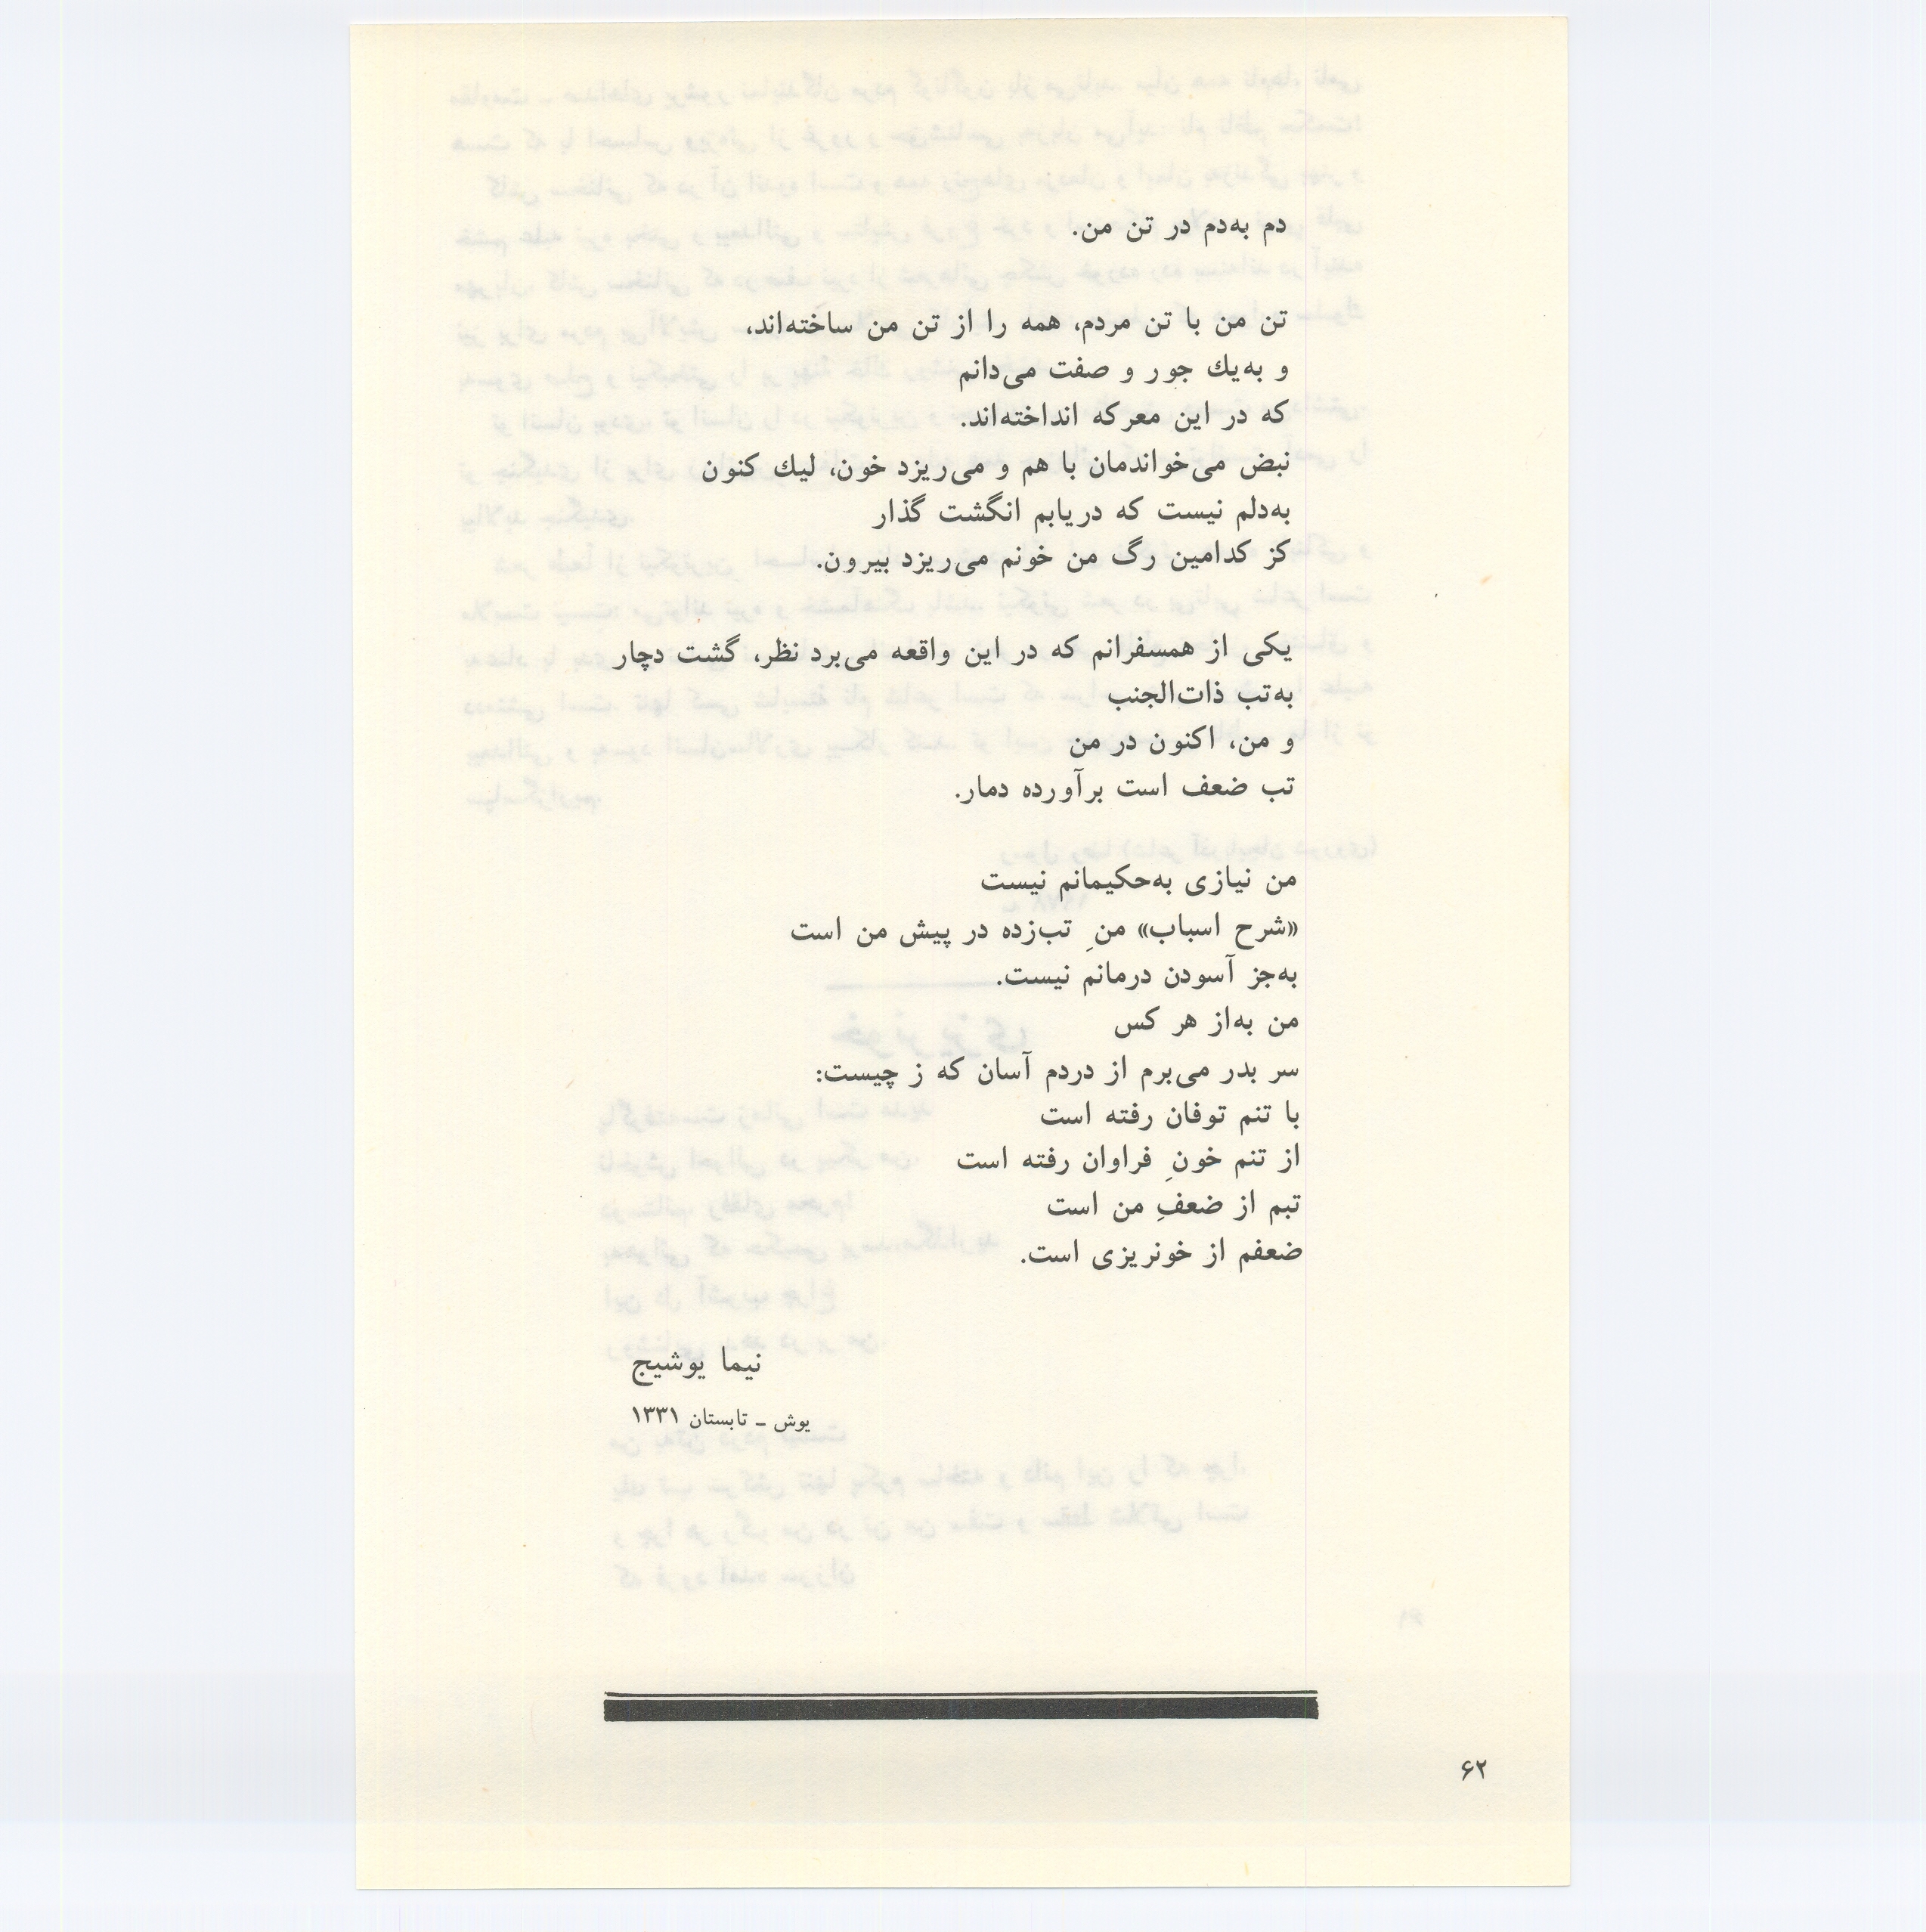 دم به‌دم در تن من.
تن من با تن مردم، همه را از تن من ساخته‌اند،
و به‌یك جور و صفت می‌دانم
که در این معرکه انداخته‌اند.
نبض می‌خواندمان با هم و می‌ریزد خون، لیك کنون
به‌دلم نیست که دریابم انگشت گذار
کز کدامین رگ من خونم می‌ریزد بیرون.
یکی از همسفرانم که در این واقعه می‌برد نظر، گشت دچار
به‌تب ذات‌الجنب
و من، اکنون در من
تب ضعف است برآورده دمار.
من نیازی به‌حکیمانم نیست
«شرح اسباب» منِ تب‌زده در پیش من است
به‌جز آسودن درمانم نیست.
من به‌از هر کس
سر بدر می‌برم از دردم آسان که ز چیست:
با تنم توفان رفته است
از تنم خونِ فراوان رفته است
تبم از ضعفِ من است
ضعفم از خونریزی است.
نیما یوشیج
یوش ـ تابستان ۱۳۳۱
۶۲